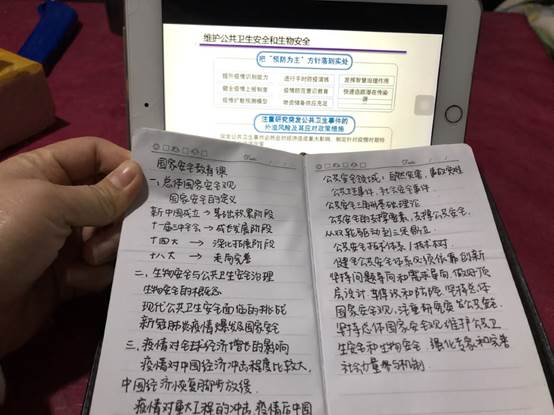 维护公共卫生安全和生物安全
把“预防为主”方针落到实处
提升疫情识别能力
进行平时防疫演练
发挥智慧治理作用
健全疫情上报制度
疫情防范意识教育
快速追踪潜在传染源
疫情扩散预测模型
物资储备供应充足
注重研究突发公共卫生事件的
外溢风险及其应对政策措施
国家安全教育课
一、总体国家安全观
国家安全的定义
新中国成立→基础积累阶段
十一届三中全会→成长发展阶段
十四大 → 深化拓展阶段
十八大 → 走向完善
二、生物安全与公共卫生安全治理
生物安全的概念
现代公共卫生安全面临的挑战
新冠肺炎疫情爆发及国家安全
三、疫情对全球经济增长的影响
疫情对中国经济冲击程度比较大,
中国经济恢复脚步放缓.
疫情对重大工程的冲击,疫情后中国
公共安全领域:自然灾害,事故灾难
公共卫生事件,社会安全事件.
公共安全三角形基础理论
公共安全的支撑要素,支撑公共安全,
从双轮驱动到三足鼎立.
公共安全技术体系/技术树.
健全公共安全体系必须依靠创新
坚持问题导向和需求导向,做好顶
层设计
国家安全观,注重研究突发公共
坚持总体国家安全观维护公共卫
生安全和生物安全 强化专家和完善
社会力量参与机制